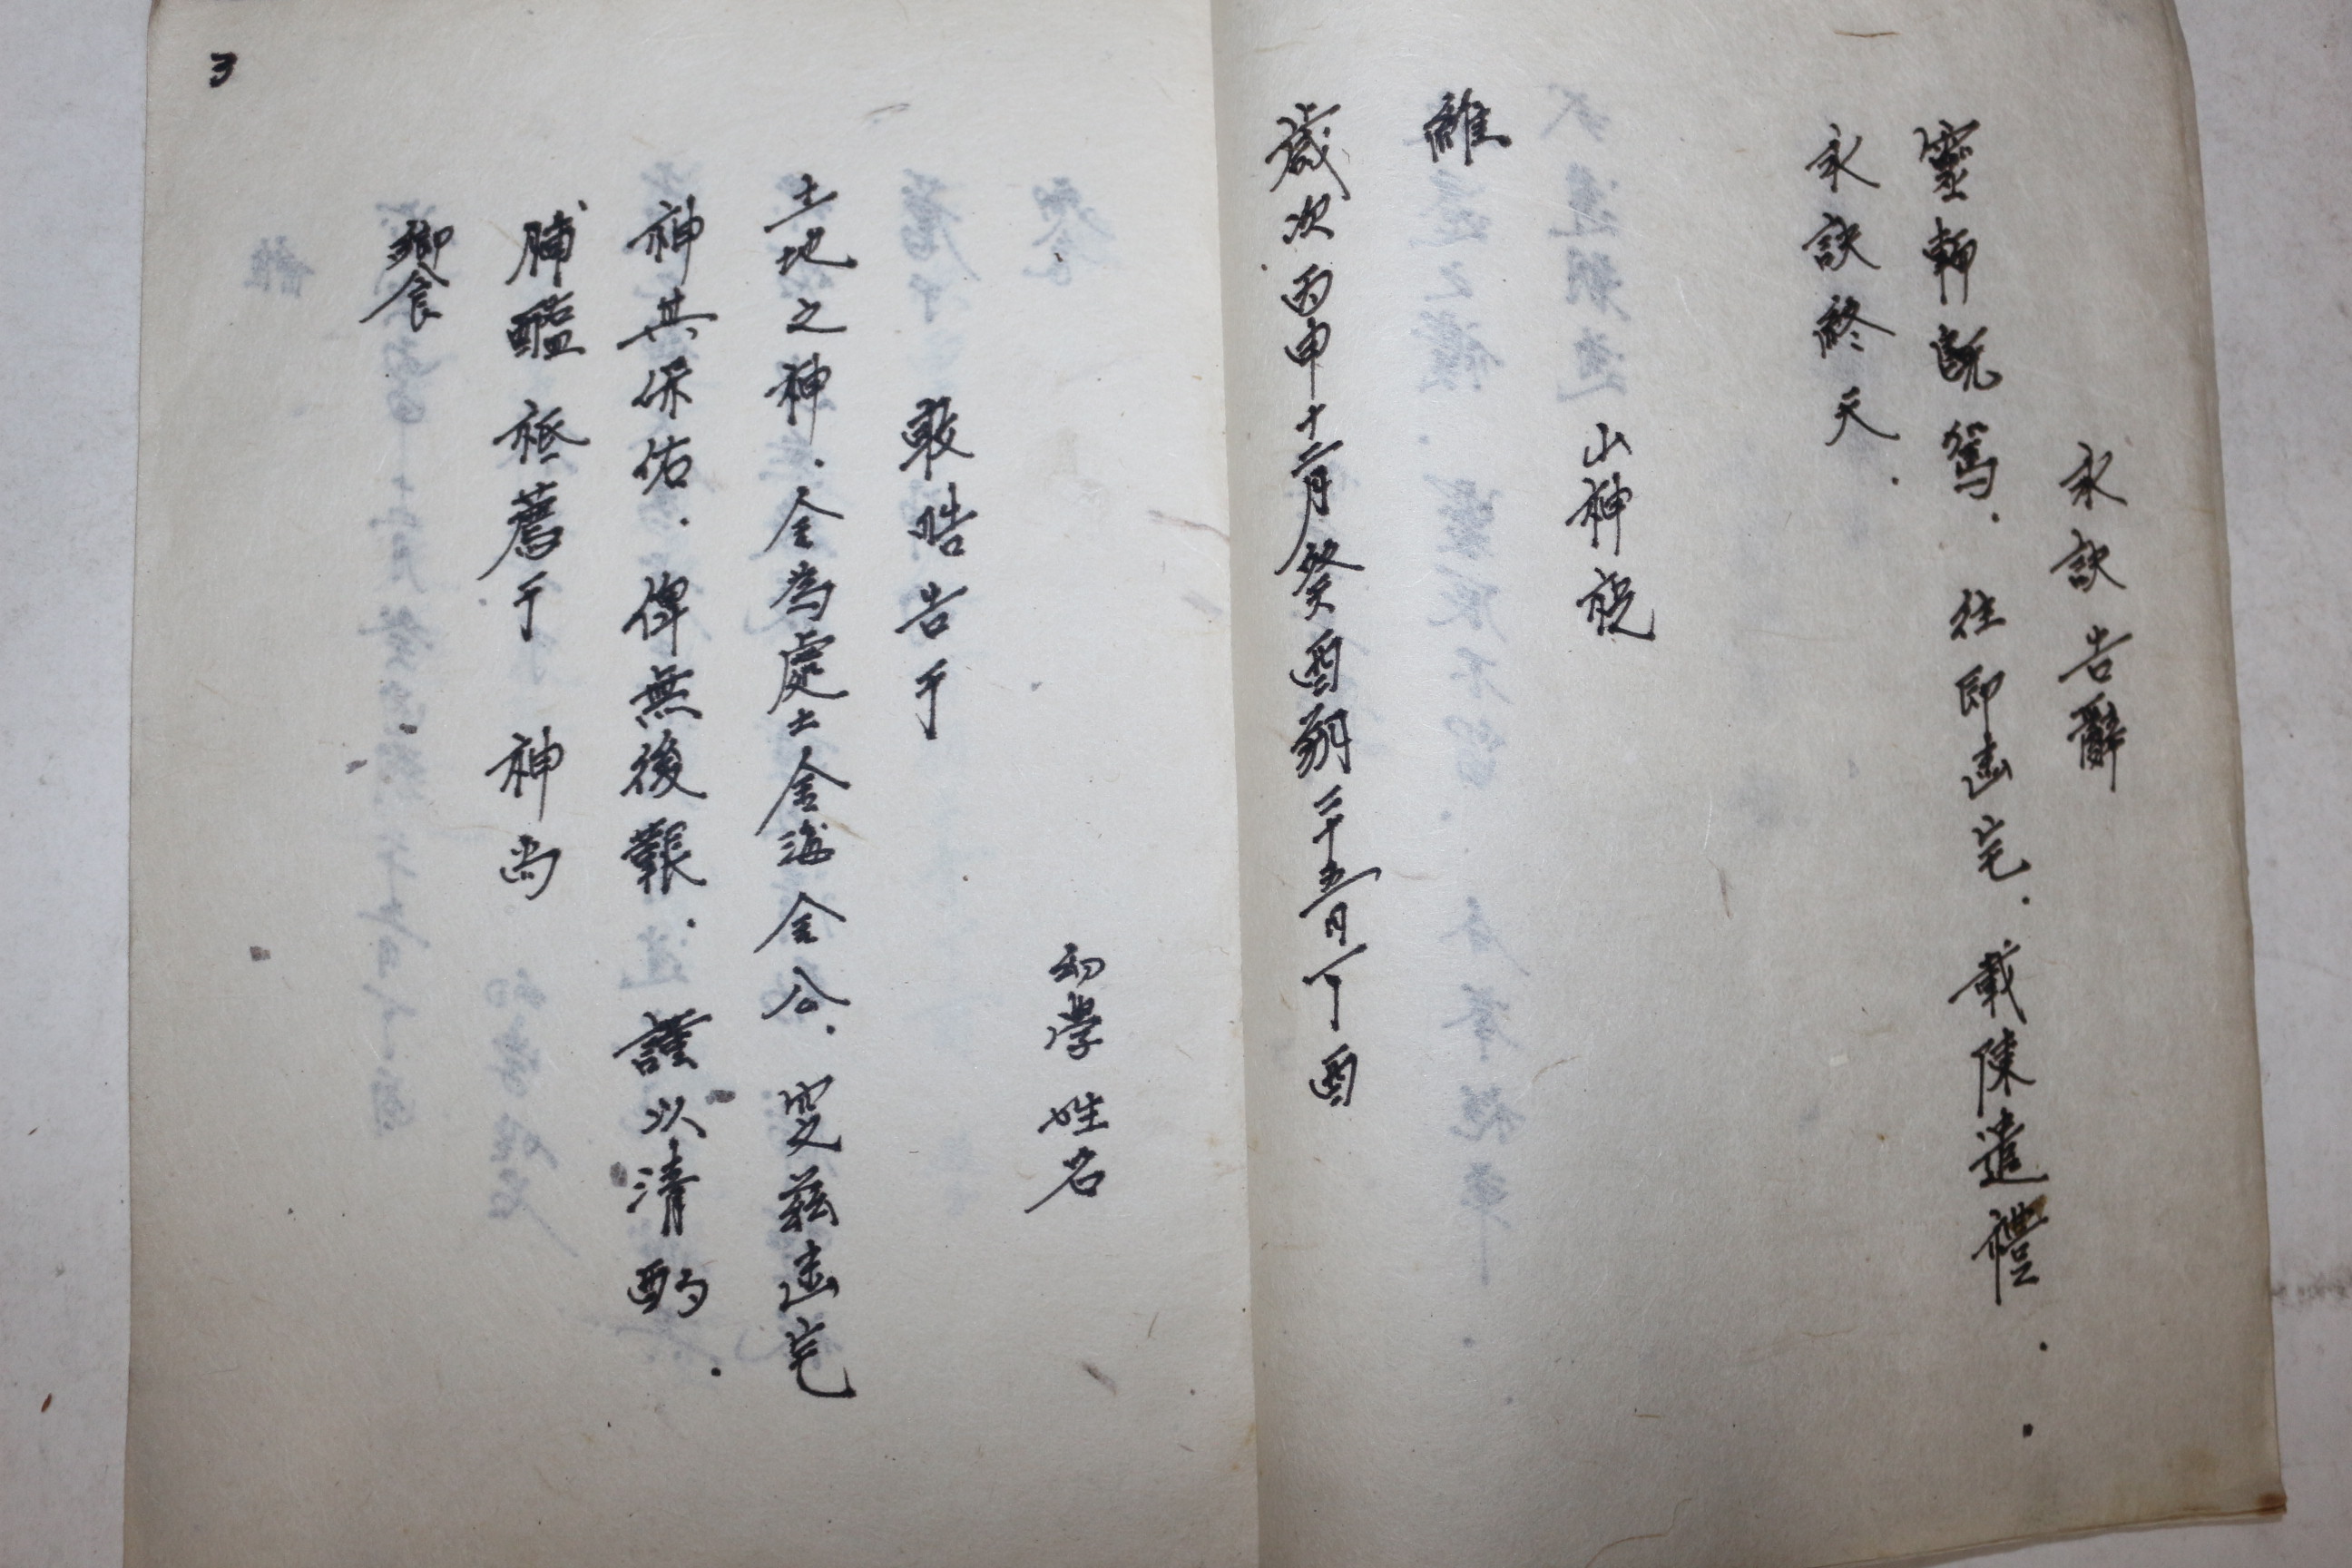 永訣告辭
靈輀旣駕．往即幽宅．載陳遣禮．．
永訣終天．
山神祝
維
歲次丙申十二月癸酉朔二十五日丁酉
幼學姓名
敢昭告于
土地之神．今為處士金海金公．窆玆幽宅
神其保佑．俾無後艱．謹以淸酌．
脯醢祗薦于 神尚
饗
3